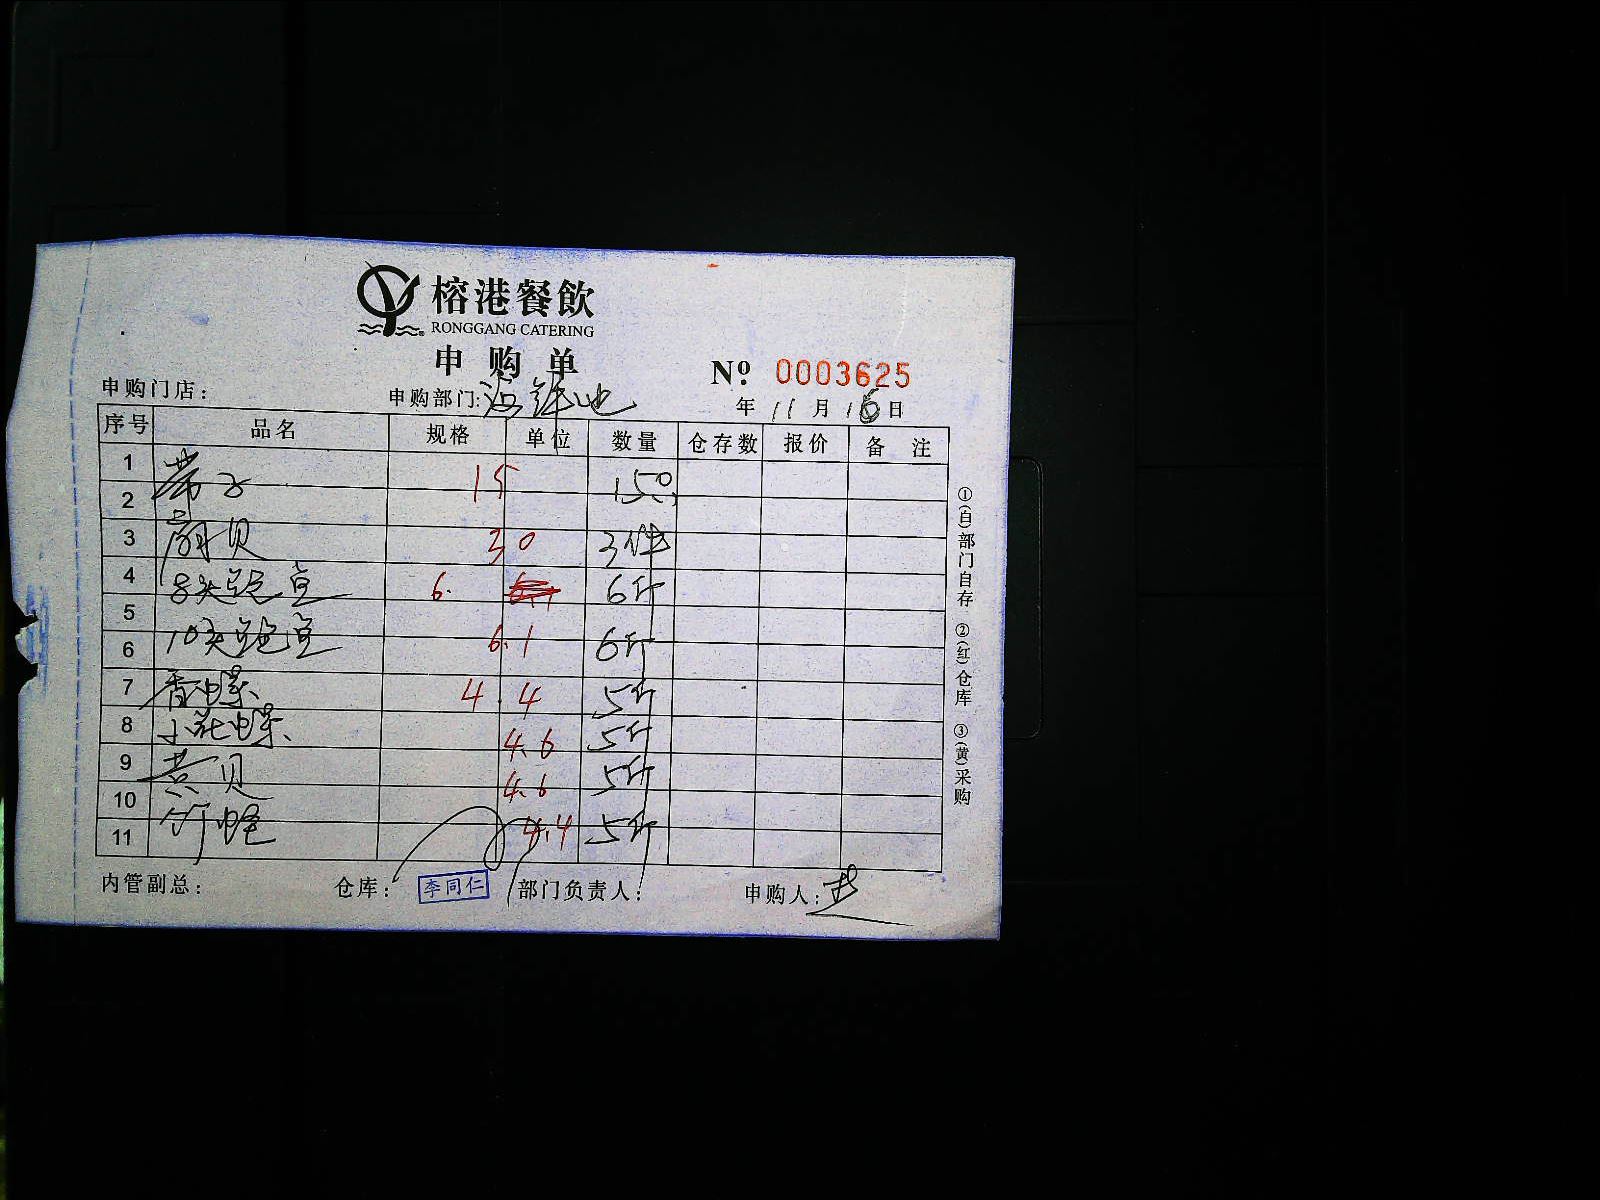 榕港餐飲
RONGGANG CATERING
申购单
№ 0003625
申购门店: 申购部门:海鲜池 年 11 月 16 日
序号 品名 规格 单位 数量 仓存数 报价 备注
1
带子 15 150
2
3 扇贝 30 3件
4 8头鲍鱼 6. 6斤
5
10头鲍鱼 6.1 6斤
6
7 香螺 4.4 5斤
8 小花螺 4.6 5斤
9 黄贝 4.6 5斤
10 竹蛏 4.4 5斤
11
内管副总: 仓库: 李同仁 部门负责人: 申购人:
①(白)部门自存 ②(红)仓库 ③(黄)采购